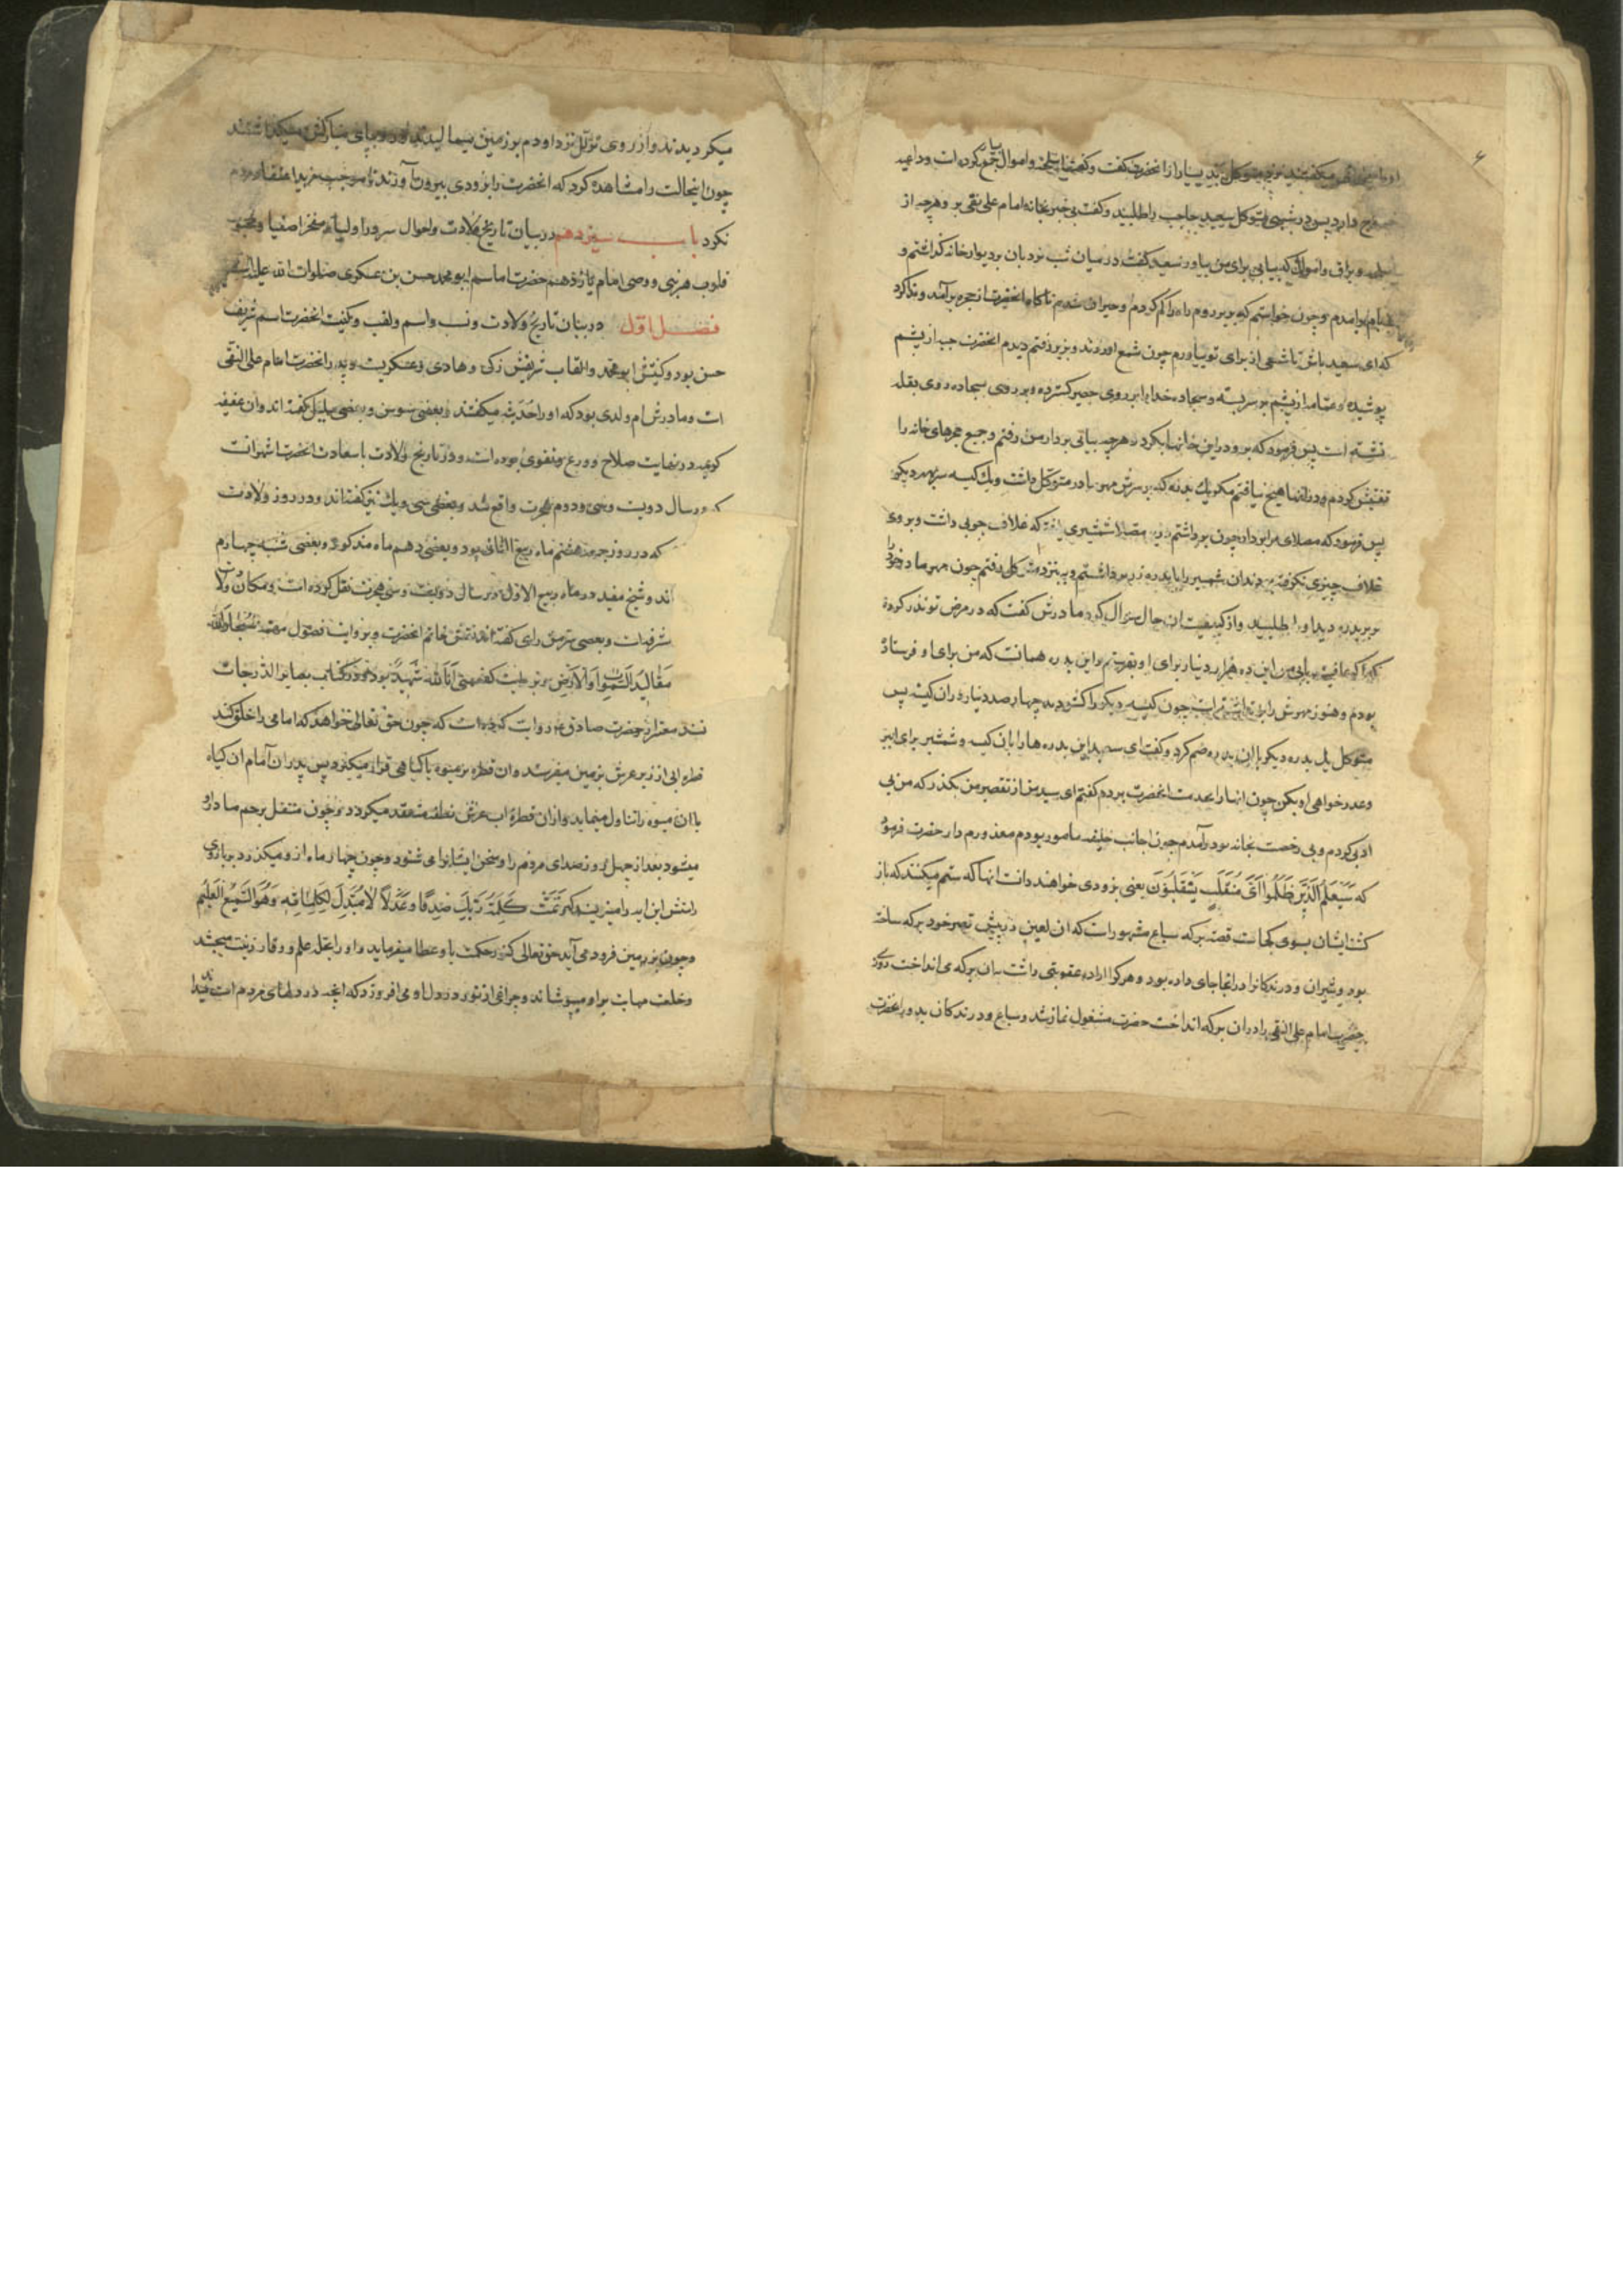 ۶
میکفتند نزد متوکل بد بسیار از انحضرت کفت و کفت اسلحه و اموال بسیار جمع کرده است و داعیه
خروج دارد پس در شبی متوکل سعید حاجب را طلبید و کفت بی خبر بخانه امام علی نقی برو هرچه از
و یراق و اموال که بیابی برای من بیاور سعید کفت در میان شب نردبان بر دیوار خانه کذاشتم و
برامدم و چون خواستم که بزیر روم راه را کم کردم و حیران شدم ناکاه انحضرت از حجره برآمد و ندا کرد
که ای سعید باش تا شمعی از برای تو بیاورم چون شمع اوردند و بزیر رفتم دیدم انحضرت جبه از پشم
پوشیده و عمامه از پشم بر سر بسته و سجاده خدا بر روی حصیر کسترده و بر روی سجاده روی بقبله
نشسته است پس فرمود که برو در این خانها بکرد و هرچه بیابی بردار من رفتم و جمیع حجرهای خانه را
تفتیش کردم و در انها هیچ نیافتم مکر یک بدره که بر سرش مهر مادر متوکل داشت و یک کیسه سربمهر دیکر
پس فرمود که مصلای مرا بردار چون برداشتم زیر مصلا شمشیری یافتم که غلاف چوبی داشت و بر روی
غلاف چیزی نکرفته بودند ان شمشیر را با بدره زر برداشتم و به نزد متوکل رفتم چون مهر مادر خود را
بر بدره دید او را طلبید و از کیفیت ان حال سؤال کرد مادرش کفت که در مرض تو نذر کرده
که اکر عافیت بیابی من این ده هزار دینار برای او بفرستم و این بدره همانست که من برای او فرستاده
بودم و هنوز مهرش را برنداشته است چون کیسه دیکر را کشودند چهار صد دینار در ان کیسه پس
متوکل یک بدره دیکر با ان بدره ضم کرد و کفت ای سعید این بدره ها را با ان کیسه و شمشیر برای او ببر
و عذرخواهی او بکن چون انها را بخدمت انحضرت بردم کفتم ای سید من از تقصیر من بکذر که من بی
ادبی کردم و بی رخصت بخانه تو درآمدم چون از جانب خلیفه مامور بودم معذورم دار حضرت فرمود
که سَیَعلَمُ الَّذینَ ظَلَمُوا اَیَّ مُنقَلَبٍ یَنقَلِبُونَ یعنی بزودی خواهند دانست انها که ستم میکنند که باز
کشت ایشان بسوی کجاست قصه برکه سباع مشهور است که ان لعین در پیش قصر خود برکه ساخته
بود و شیران و درندکان را در انجا جای داده بود و هر که را اراده عقوبتی داشت به ان برکه می انداخت روزی
حضرت امام علی النقی را در ان برکه انداخت حضرت مشغول نماز شد و سباع و درندکان بدور انحضرت
میکردیدند و از روی تذلل نزد او دم بر زمین میمالیدند و رو بپای مبارکش میکذاشتند
چون اینحالت را مشاهده کرد که انحضرت را بزودی بیرون آوردند تا موجب مزید اعتقاد مردم
نکردد باب سیزدهم در بیان تاریخ ولادت و احوال سرور اولیاء مفخر اصفیا و محبوب
قلوب هر نبی و وصی امام یازدهم حضرت امام ابو محمد حسن بن عسکری صلوات الله علیه
فصل اول در بیان تاریخ ولادت و نسب و اسم و لقب و کنیت انحضرت اسم شریف
حسن بود و کنیتش ابو محمد و القاب شریفش زکی و هادی و عسکریست و پدر انحضرت امام علی النقی
است و مادرش ام ولدی بود که او را حدیثه میکفتند و بعضی سوسن و بعضی سلیل کفته اند و ان عفیفه
کویند در نهایت صلاح و ورع و تقوی بوده است و در تاریخ ولادت با سعادت انحضرت اشهر انست
که در سال دویست و سی و دوم هجرت واقع شد و بعضی سی و یک نیز کفته اند و در روز ولادت
که در روز جمعه هشتم ماه ربیع الثانی بود و بعضی دهم ماه مذکور و بعضی شب چهارم
اند و شیخ مفید در ماه ربیع الاول در سال دویست و سی هجرت نقل کرده است و مکان ولادت
و بعضی سرمن رای کفته اند نقش خاتم انحضرت بروایت فصول مهمه سُبحانَ مَن لَهُ
مَقالیدُ السَّمواتِ وَالاَرضِ و بروایت کفعمی اَنَا لِلّهِ شَهیدٌ بود و در کتاب بصایر الدرجات
بسند معتبر از حضرت صادق ع روایت کرده است که چون حق تعالی خواهد که امامی را خلق کند
قطره ابی از زیر عرش بزمین میفرستد و ان قطره بر میوه یا کیاهی قرار میکیرد پس پدر ان امام ان کیاه
یا ان میوه را تناول مینماید و از ان قطره اب عرش نطفه منعقد میکردد و چون منتقل برحم مادر او
میشود بعد از چهل روز صدای مردم را و سخن ایشانرا می شنود و چون چهار ماه از او میکذرد بر بازوی
راستش این ایه را مینویسند که وَتَمَّت کَلِمَةُ رَبِّکَ صِدقًا وَعَدلًا لا مُبَدِّلَ لِکَلِماتِهِ وَهُوَ السَّمیعُ العَلیمُ
و چون بر زمین فرود می آید حق تعالی کنز حکمت باو عطا میفرماید و او را بحلیه علم و وقار زینت میبخشد
و خلعت مهابت بر او میپوشاند و چراغی از نور در دل او می افروزد که انچه در دلهای مردم است میداند